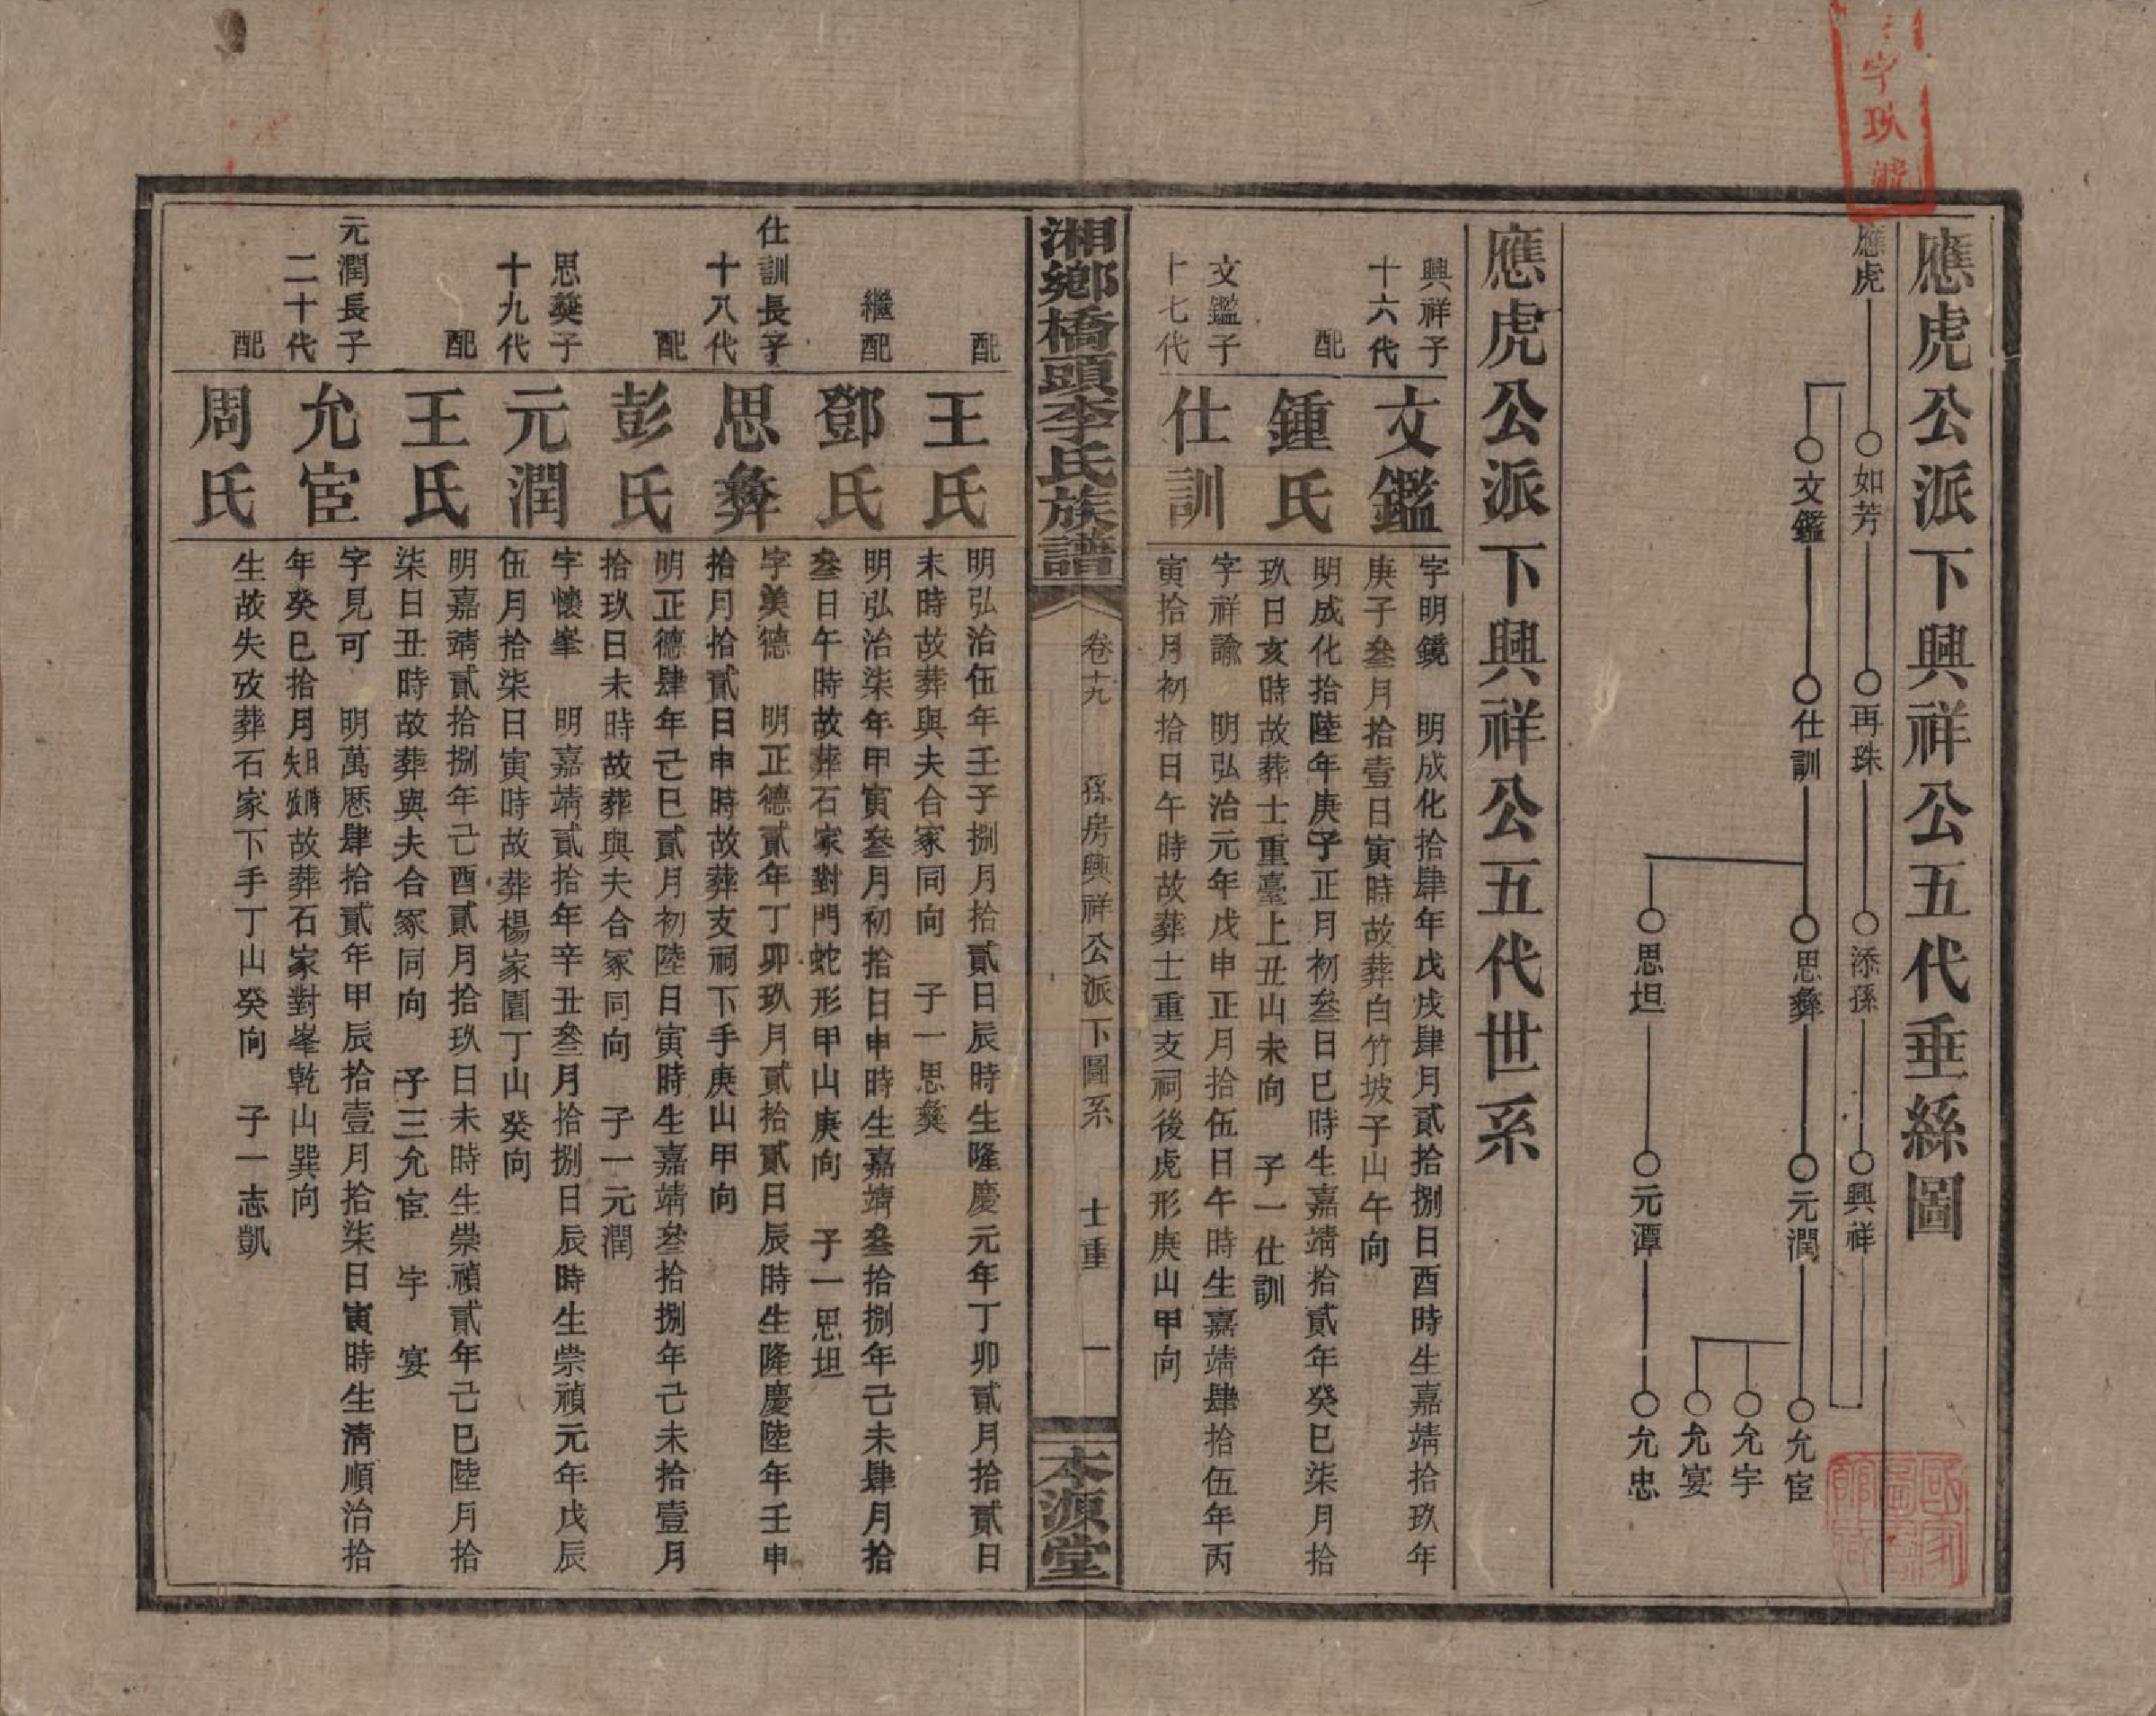 字玖號
應虎公派下興祥公五代垂絲圖
應虎 如芳 再珠 添孫 興祥
文鑑 仕訓 思彝 元潤 允宦
允宇
允宴
思坦 元潭 允忠
應虎公派下興祥公五代世系
興祥子
十六代
文鑑
字明鏡 明成化拾肆年戊戌肆月貳拾捌日酉時生嘉靖拾玖年
庚子叁月拾壹日寅時故葬白竹坡子山午向
配
鍾氏
明成化拾陸年庚子正月初叁日巳時生嘉靖拾貳年癸巳柒月拾
玖日亥時故葬士重臺上丑山未向 子一仕訓
文鑑子
十七代
仕訓
字祥諭 明弘治元年戊申正月拾伍日午時生嘉靖肆拾伍年丙
寅拾月初拾日午時故葬士重支祠後虎形庚山甲向
湘鄉橋頭李氏族譜
卷十九 孫房興祥公派下圖系 士重 一
本源堂
配
王氏
明弘治伍年壬子捌月拾貳日辰時生隆慶元年丁卯貳月拾貳日
未時故葬與夫合冢同向 子一思彝
繼配
鄧氏
明弘治柒年甲寅叁月初拾日申時生嘉靖叁拾捌年己未肆月拾
叁日午時故葬石家對門蛇形甲山庚向 子一思坦
仕訓長子
十八代
思彝
字美德 明正德貳年丁卯玖月貳拾貳日辰時生隆慶陸年壬申
拾月拾貳日申時故葬支祠下手庚山甲向
配
彭氏
明正德肆年己巳貳月初陸日寅時生嘉靖叁拾捌年己未拾壹月
拾玖日未時故葬與夫合冢同向 子一元潤
思彝子
十九代
元潤
字懷峯 明嘉靖貳拾年辛丑叁月拾捌日辰時生崇禎元年戊辰
伍月拾柒日寅時故葬楊家園丁山癸向
配
王氏
明嘉靖貳拾捌年己酉貳月拾玖日未時生崇禎貳年己巳陸月拾
柒日丑時故葬與夫合冢同向 子三允宦 宇 宴
元潤長子
二十代
允宦
字見可 明萬曆肆拾貳年甲辰拾壹月拾柒日寅時生清順治拾
年癸巳拾月日時失攷故葬石家對峯乾山巽向
配
周氏
生故失攷葬石家下手丁山癸向 子一志凱